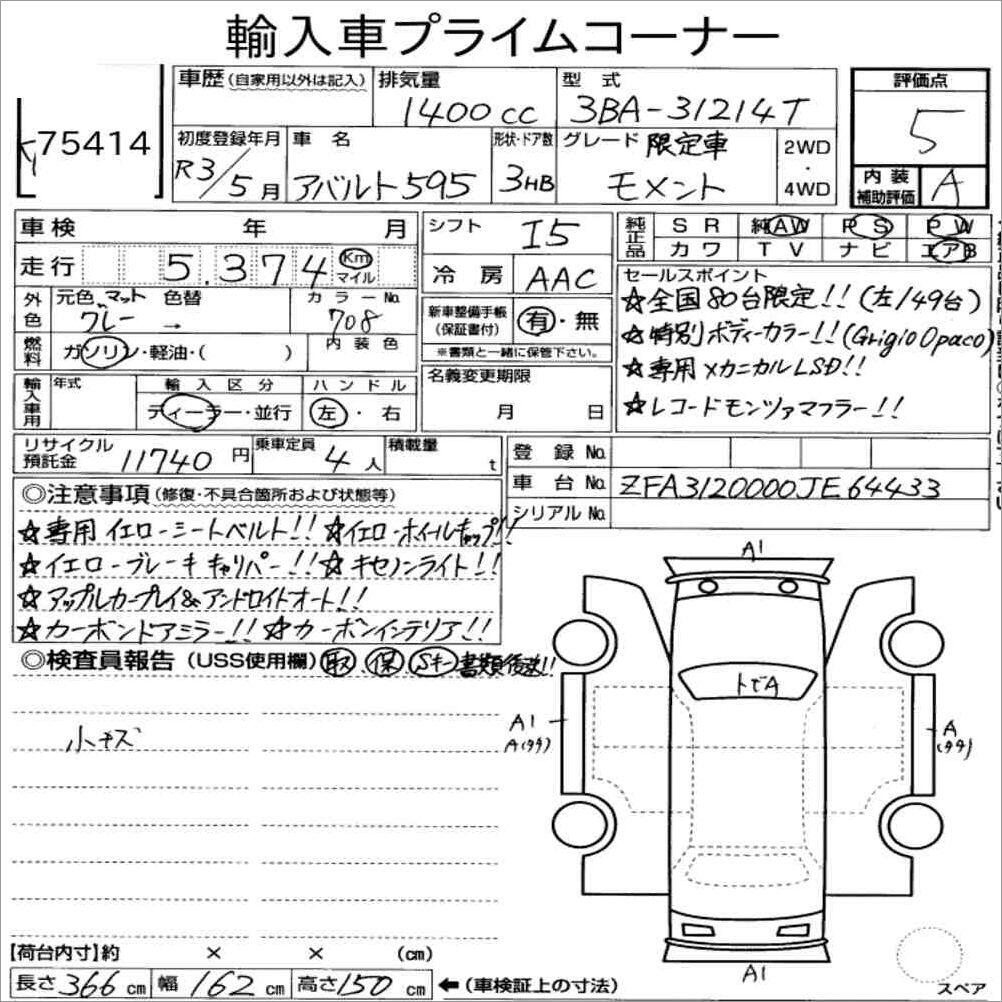 輸入車プライムコーナー
75414
車歴(自家用以外は記入)
排気量
1400cc
型式
3BA-31214T
評価点
5
初度登録年月
R3/5月
車名
アバルト595
形状・ドア数
3HB
グレード 限定車
モメント
2WD
・
4WD
内装
補助評価
A
車検 年 月
走行 5.374 Km
マイル
シフト I5
冷房 AAC
純正品
SR 純AW PS PW
カワ TV ナビ エアB
外色
元色 マット 色替
グレー →
カラーNo.
708
燃料
ガソリン・軽油・( )
内装色
新車整備手帳
(保証書付)
有・無
※書類と一緒に保管下さい。
セールスポイント
☆全国80台限定!!(左/49台)
☆特別ボディーカラー!!(Grigio Opaco)
☆専用メカニカルLSD!!
☆レコードモンツァマフラー!!
輸入車用
年式
輸入区分
ディーラー・並行
ハンドル
左・右
名義変更期限
月 日
リサイクル
預託金
11740円
乗車定員
4人
積載量
t
登録No.
車台No. ZFA3120000JE64433
シリアルNo.
◎注意事項(修復・不具合箇所および状態等)
☆専用イエローシートベルト!! ☆イエローホイールキャップ!!
☆イエローブレーキキャリパー!! ☆キセノンライト!!
☆アップルカープレイ&アンドロイドオート!!
☆カーボンドアミラー!! ☆カーボンインテリア!!
◎検査員報告(USS使用欄) 取 保 Sキー 書類後送!!
小キズ
A1
トビA
A1
A(タテ)
A
(タテ)
A1
【荷台内寸】約 × × (cm)
長さ366cm 幅162cm 高さ150cm ←(車検証上の寸法)
スペア